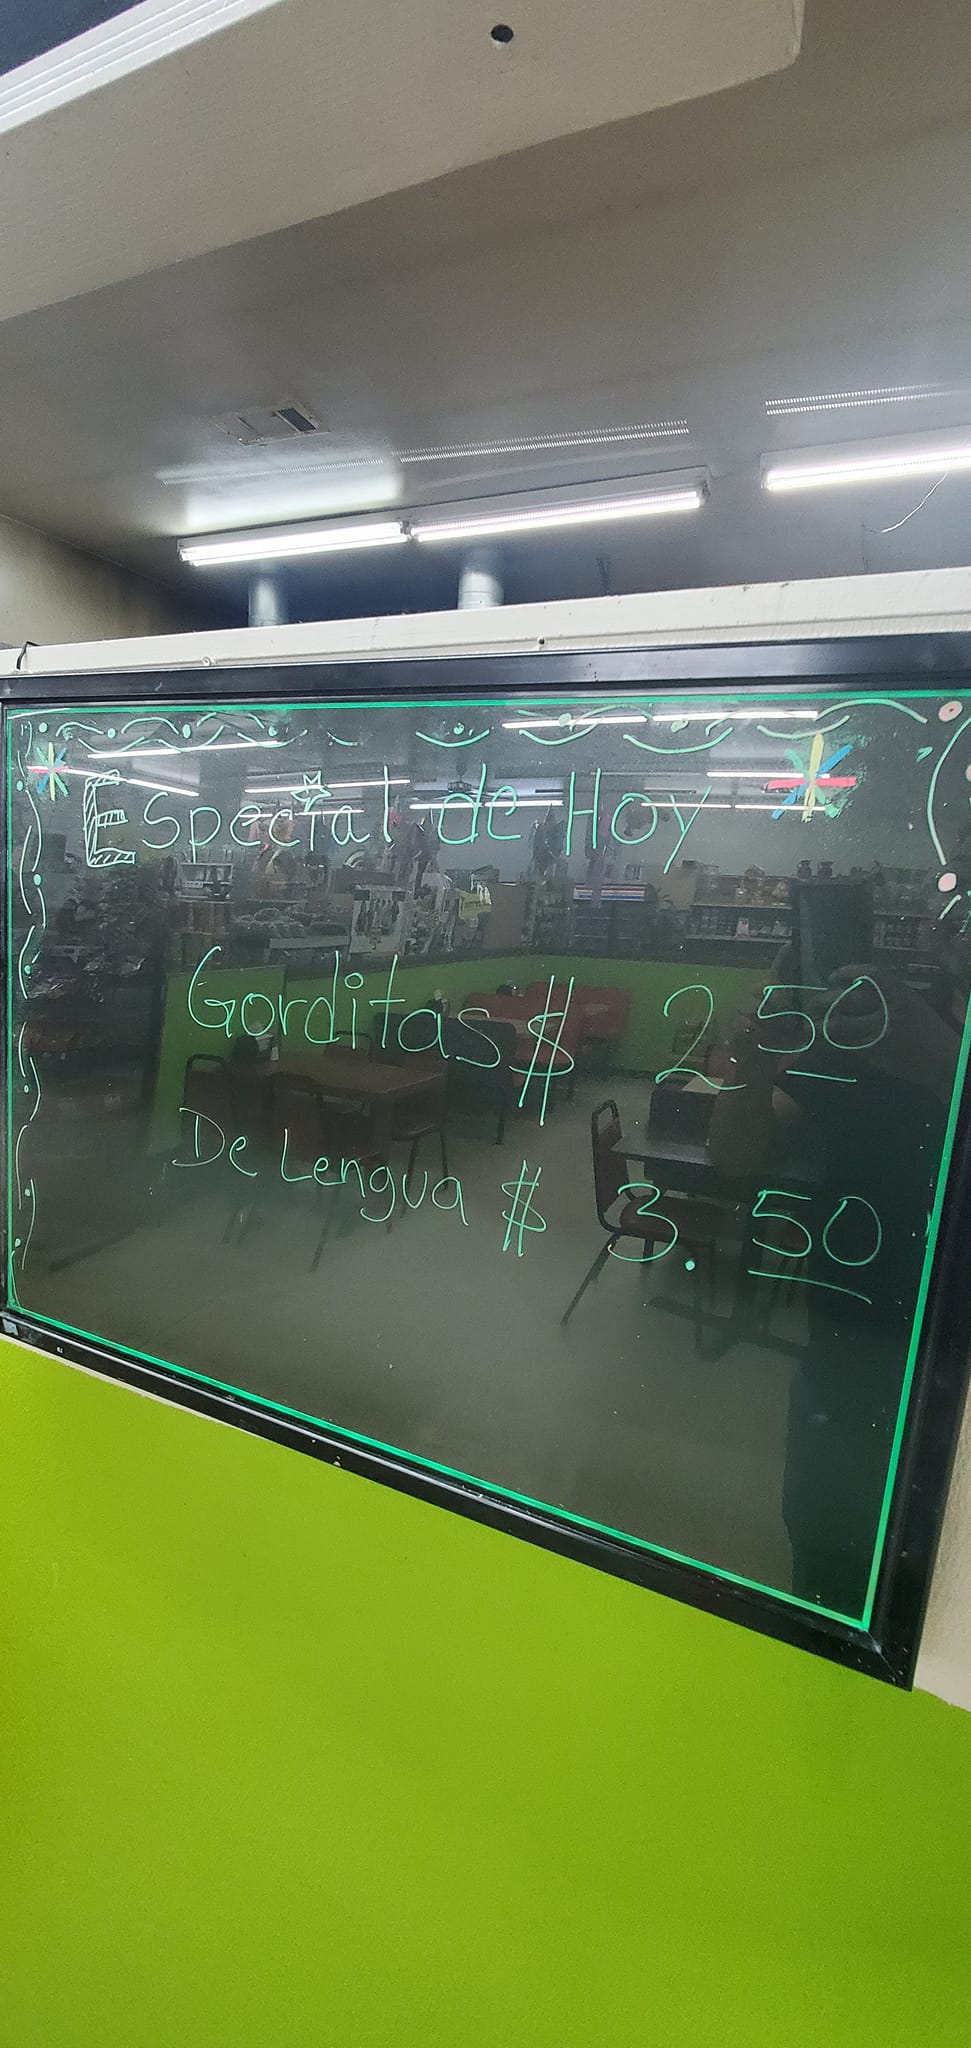 Especial de Hoy
Gorditas $ 2.50
De Lengua $ 3.50